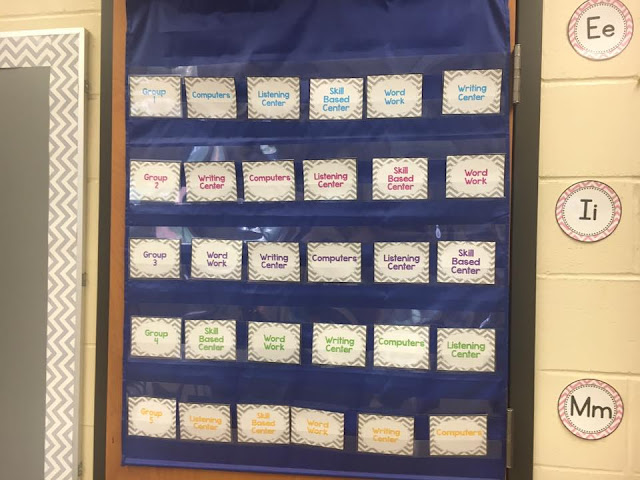 Group
1
Computers
Listening
Center
Skill
Based
Center
Word
Work
Writing
Center
Group
2
Writing
Center
Computers
Listening
Center
Skill
Based
Center
Word
Work
Group
3
Word
Work
Writing
Center
Computers
Listening
Center
Skill
Based
Center
Group
4
Skill
Based
Center
Word
Work
Writing
Center
Computers
Listening
Center
Group
5
Listening
Center
Skill
Based
Center
Word
Work
Writing
Center
Computers
Ee
Ii
Mm